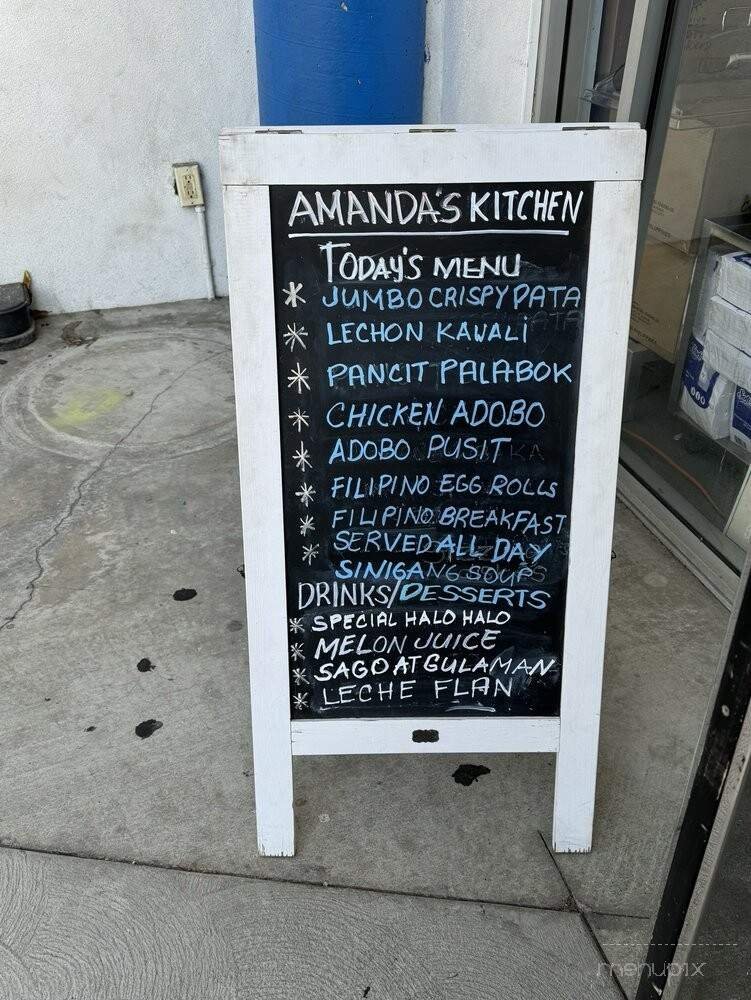 AMANDA'S KITCHEN
TODAY'S MENU
* JUMBO CRISPY PATA
* LECHON KAWALI
* PANCIT PALABOK
* CHICKEN ADOBO
* ADOBO PUSIT
* FILIPINO EGG ROLLS
* FILIPINO BREAKFAST
* SERVED ALL DAY
SINIGANG SOUPS
DRINKS/DESSERTS
* SPECIAL HALO HALO
* MELON JUICE
* SAGO AT GULAMAN
* LECHE FLAN
menupix